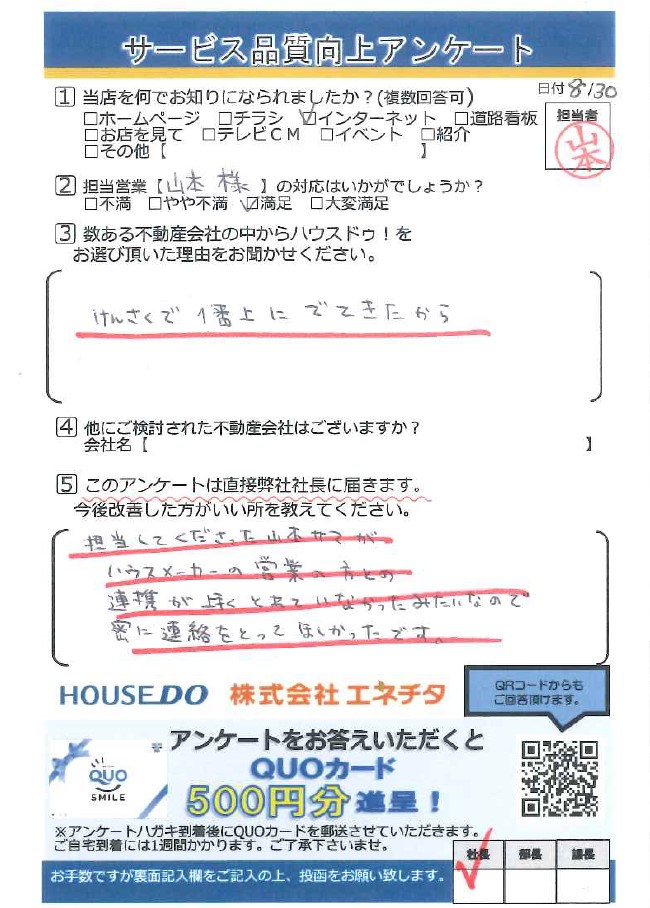 サービス品質向上アンケート
日付 8/30
1 当店を何でお知りになられましたか？(複数回答可)
□ホームページ □チラシ ☑インターネット □道路看板
□お店を見て □テレビCM □イベント □紹介
□その他【 】
担当者
山本
2 担当営業【山本 様 】の対応はいかがでしょうか？
□不満 □やや不満 ☑満足 □大変満足
3 数ある不動産会社の中からハウスドゥ！を
お選び頂いた理由をお聞かせください。
けんさくで 1番上に でてきたから
4 他にご検討された不動産会社はございますか？
会社名【 】
5 このアンケートは直接弊社社長に届きます。
今後改善した方がいい所を教えてください。
担当してくださった山本サマが
ハウスメーカーの営業の方との
連携が上手くとれていなかったみたいなので
密に連絡をとってほしかったです。
HOUSEDO 株式会社 エネチタ
QRコードからも
ご回答頂けます。
アンケートをお答えいただくと
QUOカード
500円分 進呈！
QUO
SMILE
※アンケートハガキ到着後にQUOカードを郵送させていただきます。
ご自宅到着には1週間かかります。ご了承下さいませ。
社長 部長 課長
お手数ですが裏面記入欄をご記入の上、投函をお願い致します。